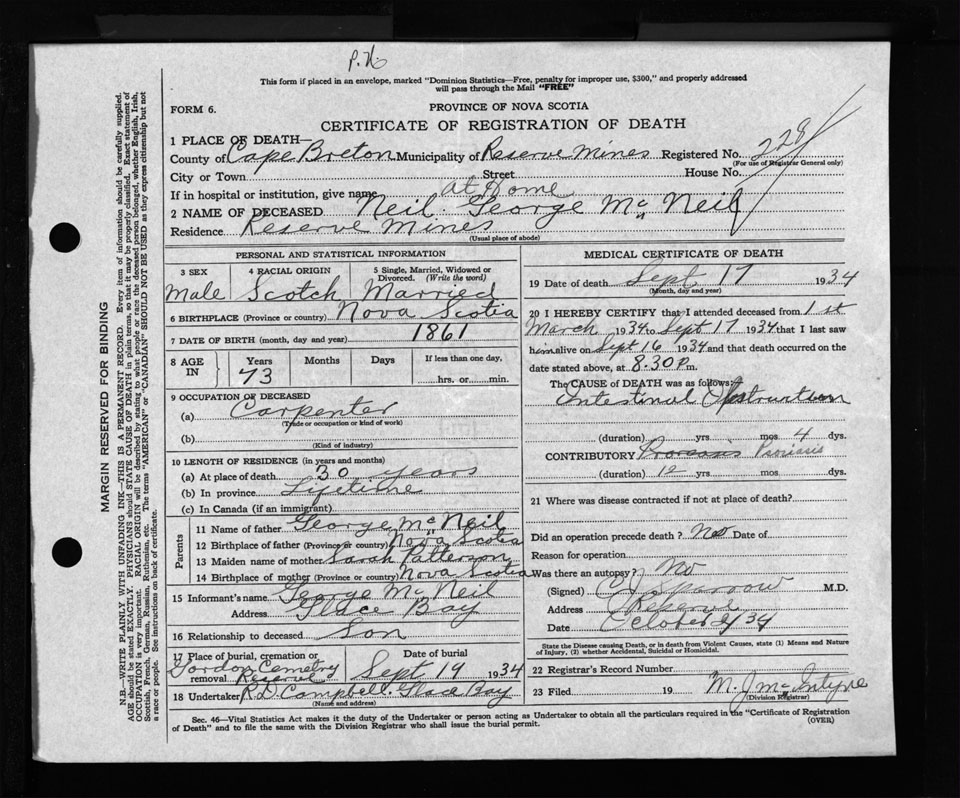 P. 76
This form if placed in an envelope, marked "Dominion Statistics—Free, penalty for improper use, $300," and properly addressed
will pass through the Mail "FREE"
FORM 6.
PROVINCE OF NOVA SCOTIA
CERTIFICATE OF REGISTRATION OF DEATH
1 PLACE OF DEATH—
County of Cape Breton Municipality of Reserve Mines Registered No. 228
(For use of Registrar General only)
City or Town Street House No.
If in hospital or institution, give name At Home
2 NAME OF DECEASED Neil George McNeil
Residence Reserve Mines
(Usual place of abode)
PERSONAL AND STATISTICAL INFORMATION
3 SEX 4 RACIAL ORIGIN 5 Single, Married, Widowed or Divorced. (Write the word)
Male Scotch Married
6 BIRTHPLACE (Province or country) Nova Scotia
7 DATE OF BIRTH (month, day and year) 1861
8 AGE IN Years Months Days If less than one day,
73 hrs. or min.
9 OCCUPATION OF DECEASED
(a) Carpenter
(Trade or occupation or kind of work)
(b)
(Kind of industry)
10 LENGTH OF RESIDENCE (in years and months)
(a) At place of death 30 years
(b) In province Lifetime
(c) In Canada (if an immigrant)
Parents
11 Name of father George McNeil
12 Birthplace of father (Province or country) Nova Scotia
13 Maiden name of mother Sarah Patterson
14 Birthplace of mother (Province or country) Nova Scotia
15 Informant's name George McNeil
Address Glace Bay
16 Relationship to deceased Son
17 Place of burial, cremation or removal Date of burial
Gordon Cemetry Reserve Sept 19 1934
18 Undertaker R.D. Campbell. Glace Bay
(Name and address)
MEDICAL CERTIFICATE OF DEATH
19 Date of death Sept. 17 1934
(Month, day and year)
20 I HEREBY CERTIFY that I attended deceased from 1st
March 1934 to Sept 17 1934 that I last saw
him alive on Sept 16 1934 and that death occurred on the
date stated above, at 8.30 P m.
The CAUSE of DEATH was as follows:
Intestinal Obstruction
(duration) yrs mos 4 dys.
CONTRIBUTORY Psoriasis
(duration) 12 yrs mos dys.
21 Where was disease contracted if not at place of death?
Did an operation precede death? No Date of
Reason for operation
Was there an autopsy? No
(Signed) Sparrow M.D.
Address Reserve
Date October 2/34
State the Disease causing Death, or in death from Violent Causes, state (1) Means and Nature
of Injury, (2) whether Accidental, Suicidal or Homicidal.
22 Registrar's Record Number
23 Filed 19 M. J. McIntyre
(Division Registrar)
Sec. 46—Vital Statistics Act makes it the duty of the Undertaker or person acting as Undertaker to obtain all the particulars required in the "Certificate of Registration
of Death" and to file the same with the Division Registrar who shall issue the burial permit.
(OVER)
MARGIN RESERVED FOR BINDING
N.B.—WRITE PLAINLY WITH UNFADING INK—THIS IS A PERMANENT RECORD. Every item of information should be carefully supplied.
AGE should be stated EXACTLY. PHYSICIANS should STATE CAUSE OF DEATH in plain terms, so that it may be properly classified. Exact statement of
OCCUPATION is very important. RACIAL ORIGIN will be described by stating to what people or race the deceased person belonged, whether English, Irish,
Scottish, French, German, Russian, Ruthenian, etc. The terms "AMERICAN" or "CANADIAN" SHOULD NOT BE USED as they express citizenship but not
a race or people. See instructions on back of certificate.